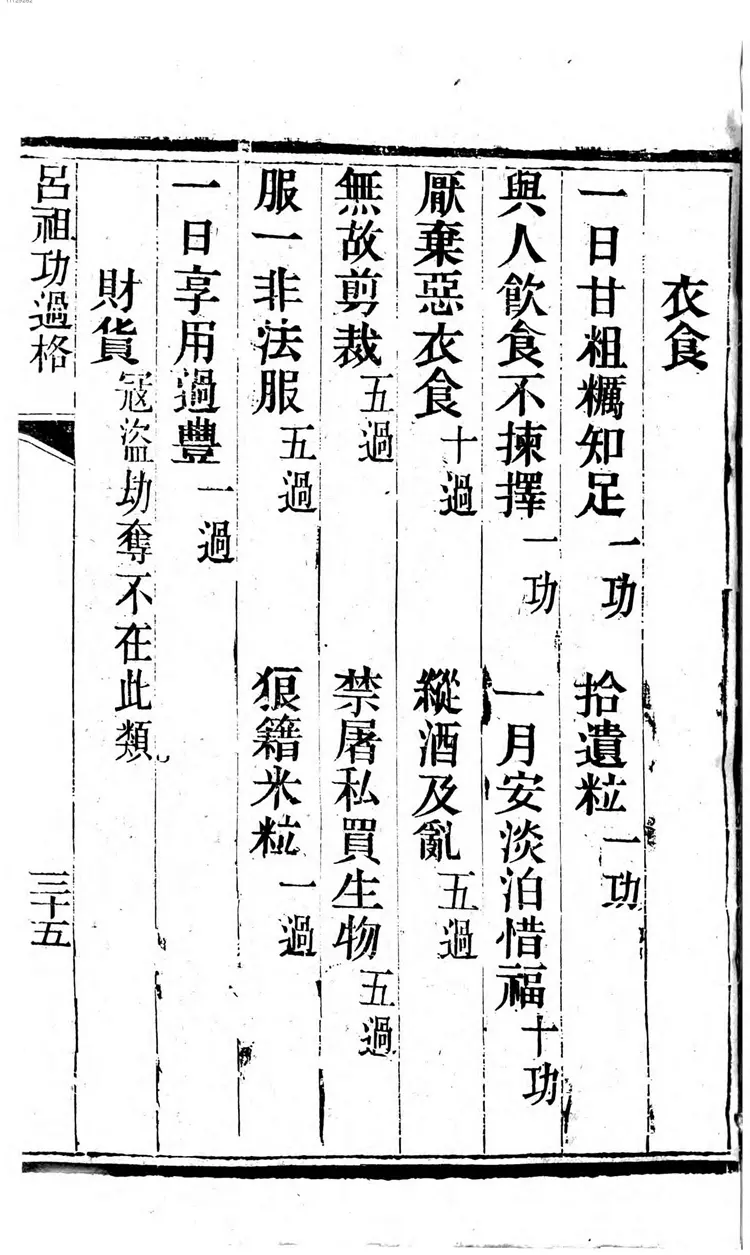 衣食
一日甘粗糲知足一功　拾遺粒一功
與人飲食不揀擇一功　一月安淡泊惜福十功
厭棄惡衣食十過　縱酒及亂五過
無故剪裁五過　禁屠私買生物五過
服一非法服五過　狼籍米粒一過
一日享用過豐一過
財貨寇盜劫奪不在此類
呂祖功過格　三十五